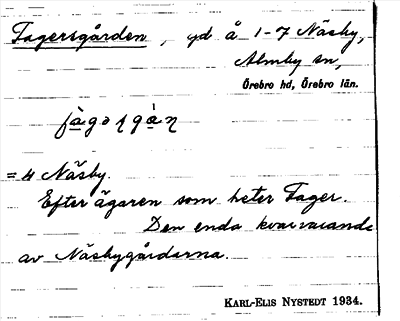 Fagersgården, yd å 1-7 Näsby,
Almby sn,
Örebro hd, Örebro län.
= 4 Näsby.
Efter ägaren som heter Fager.
Den enda kvarvarande
av Näsbygårdarna.
KARL-ELIS NYSTEDT 1934.